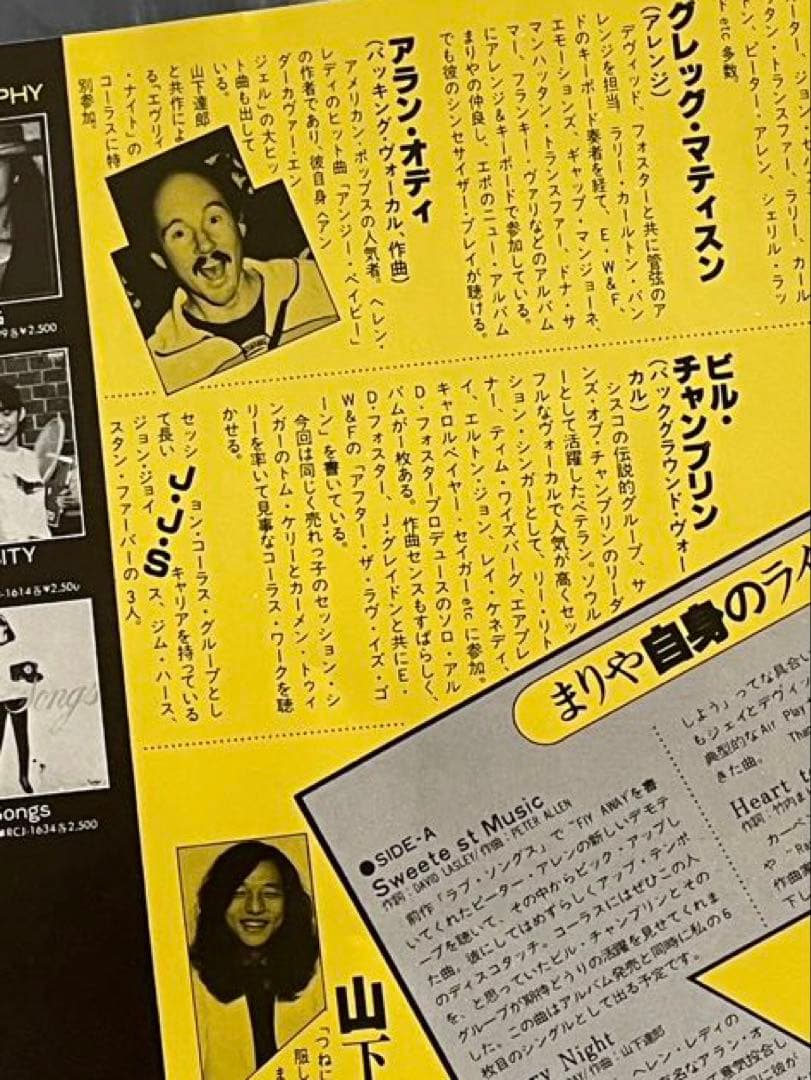 ーター、ジョン・
タン・トランスファー、ラリー、カール
トン、ピーター・アレン、シェリル・ラッ
ド etc 多数。
グレッグ・マティスン
(アレンジ)
デヴィッド、フォスターと共に管弦のア
レンジを担当。ラリー・カールトン・バン
ドのキーボード奏者を経て、E・W&F、
エモーションズ、ギャップ・マンジョーネ、
マンハッタン・トランスファー、ドナ・サ
マー、フランキー・ヴァリなどのアルバム
にアレンジ&キーボードで参加している。
まりやの仲良し、エポのニュー・アルバム
でも彼のシンセサイザー・プレイが聴ける。
アラン・オデイ
(バッキング・ヴォーカル、作曲)
アメリカン・ポップスの人気者。ヘレン・
レディのヒット曲「アンジー・ベイビー」
の作者であり、彼自身へアン
ダーカヴァー・エン
ジェル」の大ヒッ
ト曲も出して
いる。
山下達郎
と共作によ
る「エヴリィ
・ナイト」の
コーラスに特
別参加。
ビル・
チャンプリン
(バックグラウンド・ヴォー
カル)
シスコの伝説的グループ、サ
ンズ・オブ・チャンプリンのリーダ
ーとして活躍したベテラン。ソウル
フルなヴォーカルで人気が高くセッ
ション・シンガーとして、リー・リト
ナー、ティム・ワイズバーグ、エアプレ
イ、エルトン・ジョン、レイ・ケネディ、
キャロルベイヤー、セイガー etc に参加。
D・フォスタープロデュースのソロ・アル
バムが一枚ある。作曲センスもすばらしく、
D・フォスター、J・グレイドンと共にE・
W&Fの「アフター・ザ・ラヴ・イズ・ゴ
ーン」を書いている。
今回は同じく売れっ子のセッション・シ
ンガーのトム・ケリーとカーメン・トゥィ
リーを率いて見事なコーラス・ワークを聴
かせる。
J・J・S
セッション・コーラス・グループとし
て長いキャリアを持っている
ジョン・ジョイス、ジム・ハース、
スタン・ファーバーの3人。
PHY
9各¥2,500
ITY
-1614各¥2,500
Songs
ongs
RCJ-1634各2,500
山下
「つねに
服し
ま
まりや自身のライ
●SIDE-A
Sweetest Music
作詞:DAVID LASLEY/作曲:PETER ALLEN
前作「ラブ・ソングス」で“FLY AWAY”を書
いてくれたピーター・アレンの新しいデモテ
ープを聴いて、その中からピック・アップし
た曲。彼にしてはめずらしくアップ・テンポ
のディスコタッチ。コーラスにはぜひこの人
を、と思っていたビル・チャンプリンとその
グループが期待どうりの活躍を見せてくれま
した。この曲はアルバム発売と同時に私の6
枚目のシングルとして出る予定です。
ry Night
AY/作曲:山下達郎
ヘレン・レディの
名なアラン・オ
て意気投合し
しよう」ってな具合
もジェイとデヴィッ
典型的なAir Play
きた曲。
Heart t
作詞:竹内ま
カーペ
や“Ra
作曲家
下し